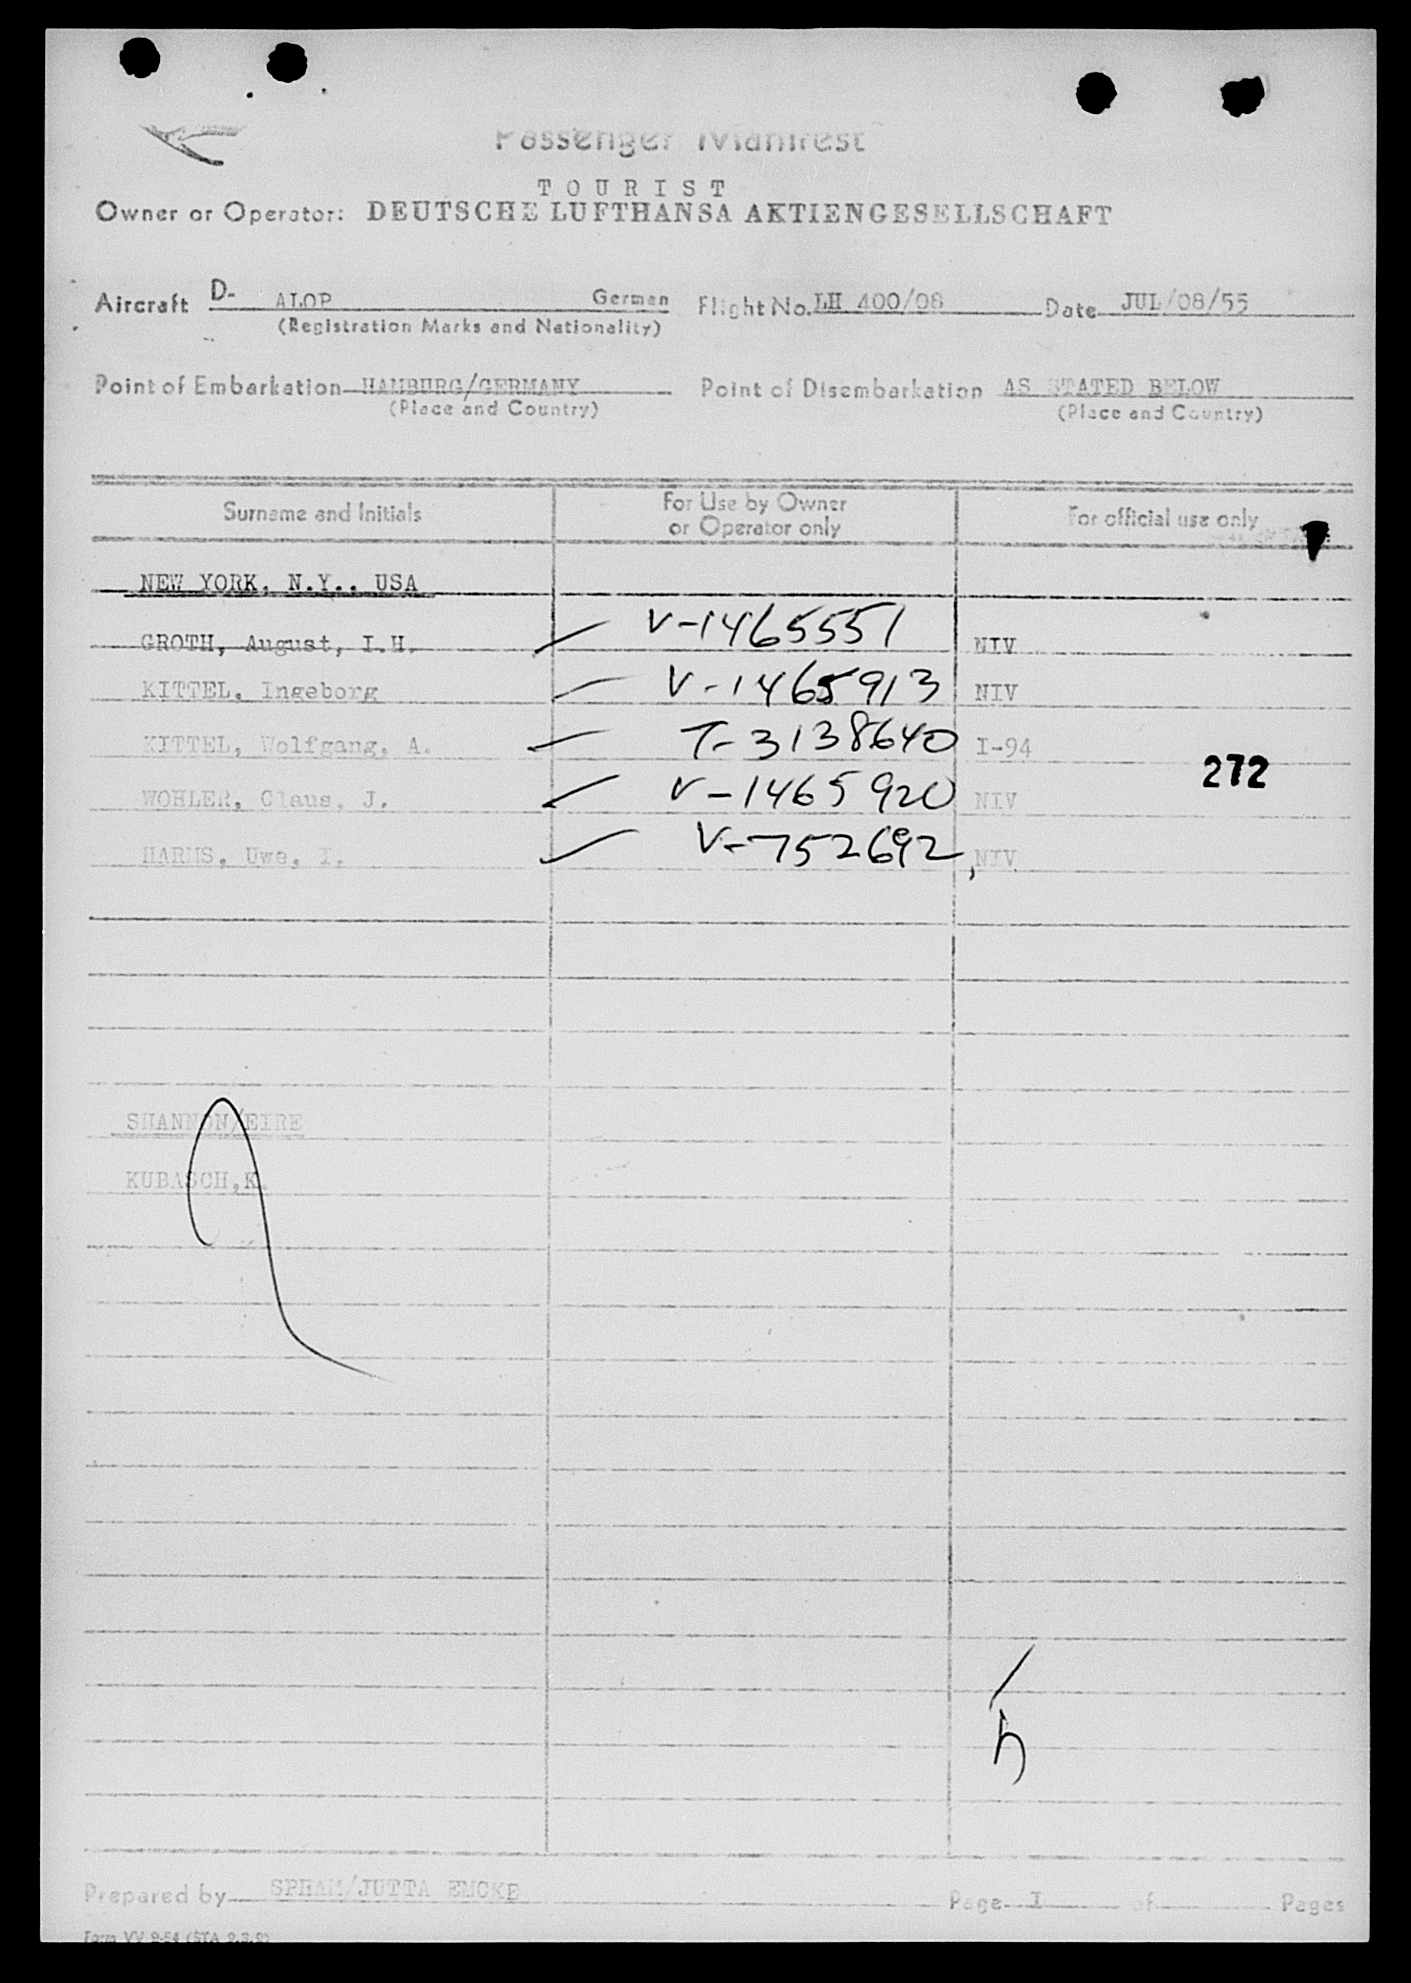 Passenger Manifest
TOURIST
Owner or Operator: DEUTSCHE LUFTHANSA AKTIENGESELLSCHAFT
Aircraft D- ALOP German Flight No. LH 400/08 Date JUL/08/55
(Registration Marks and Nationality)
Point of Embarkation HAMBURG/GERMANY Point of Disembarkation AS STATED BELOW
(Place and Country) (Place and Country)
Surname and Initials For Use by Owner or Operator only For official use only
NEW YORK, N.Y., USA
GROTH, August, I.H. V-1465551 NIV
KITTEL, Ingeborg V-1465913 NIV
KITTEL, Wolfgang, A. T-3138640 I-94
272
WOHLER, Claus, J. V-1465920 NIV
HARMS, Uwe, I. V-752692 NIV
SHANNON/EIRE
KUBASCH,K.
Prepared by SPHAM/JUTTA EMCKE Page I of Pages
Form VV 9-54 (STA 2.3.2)